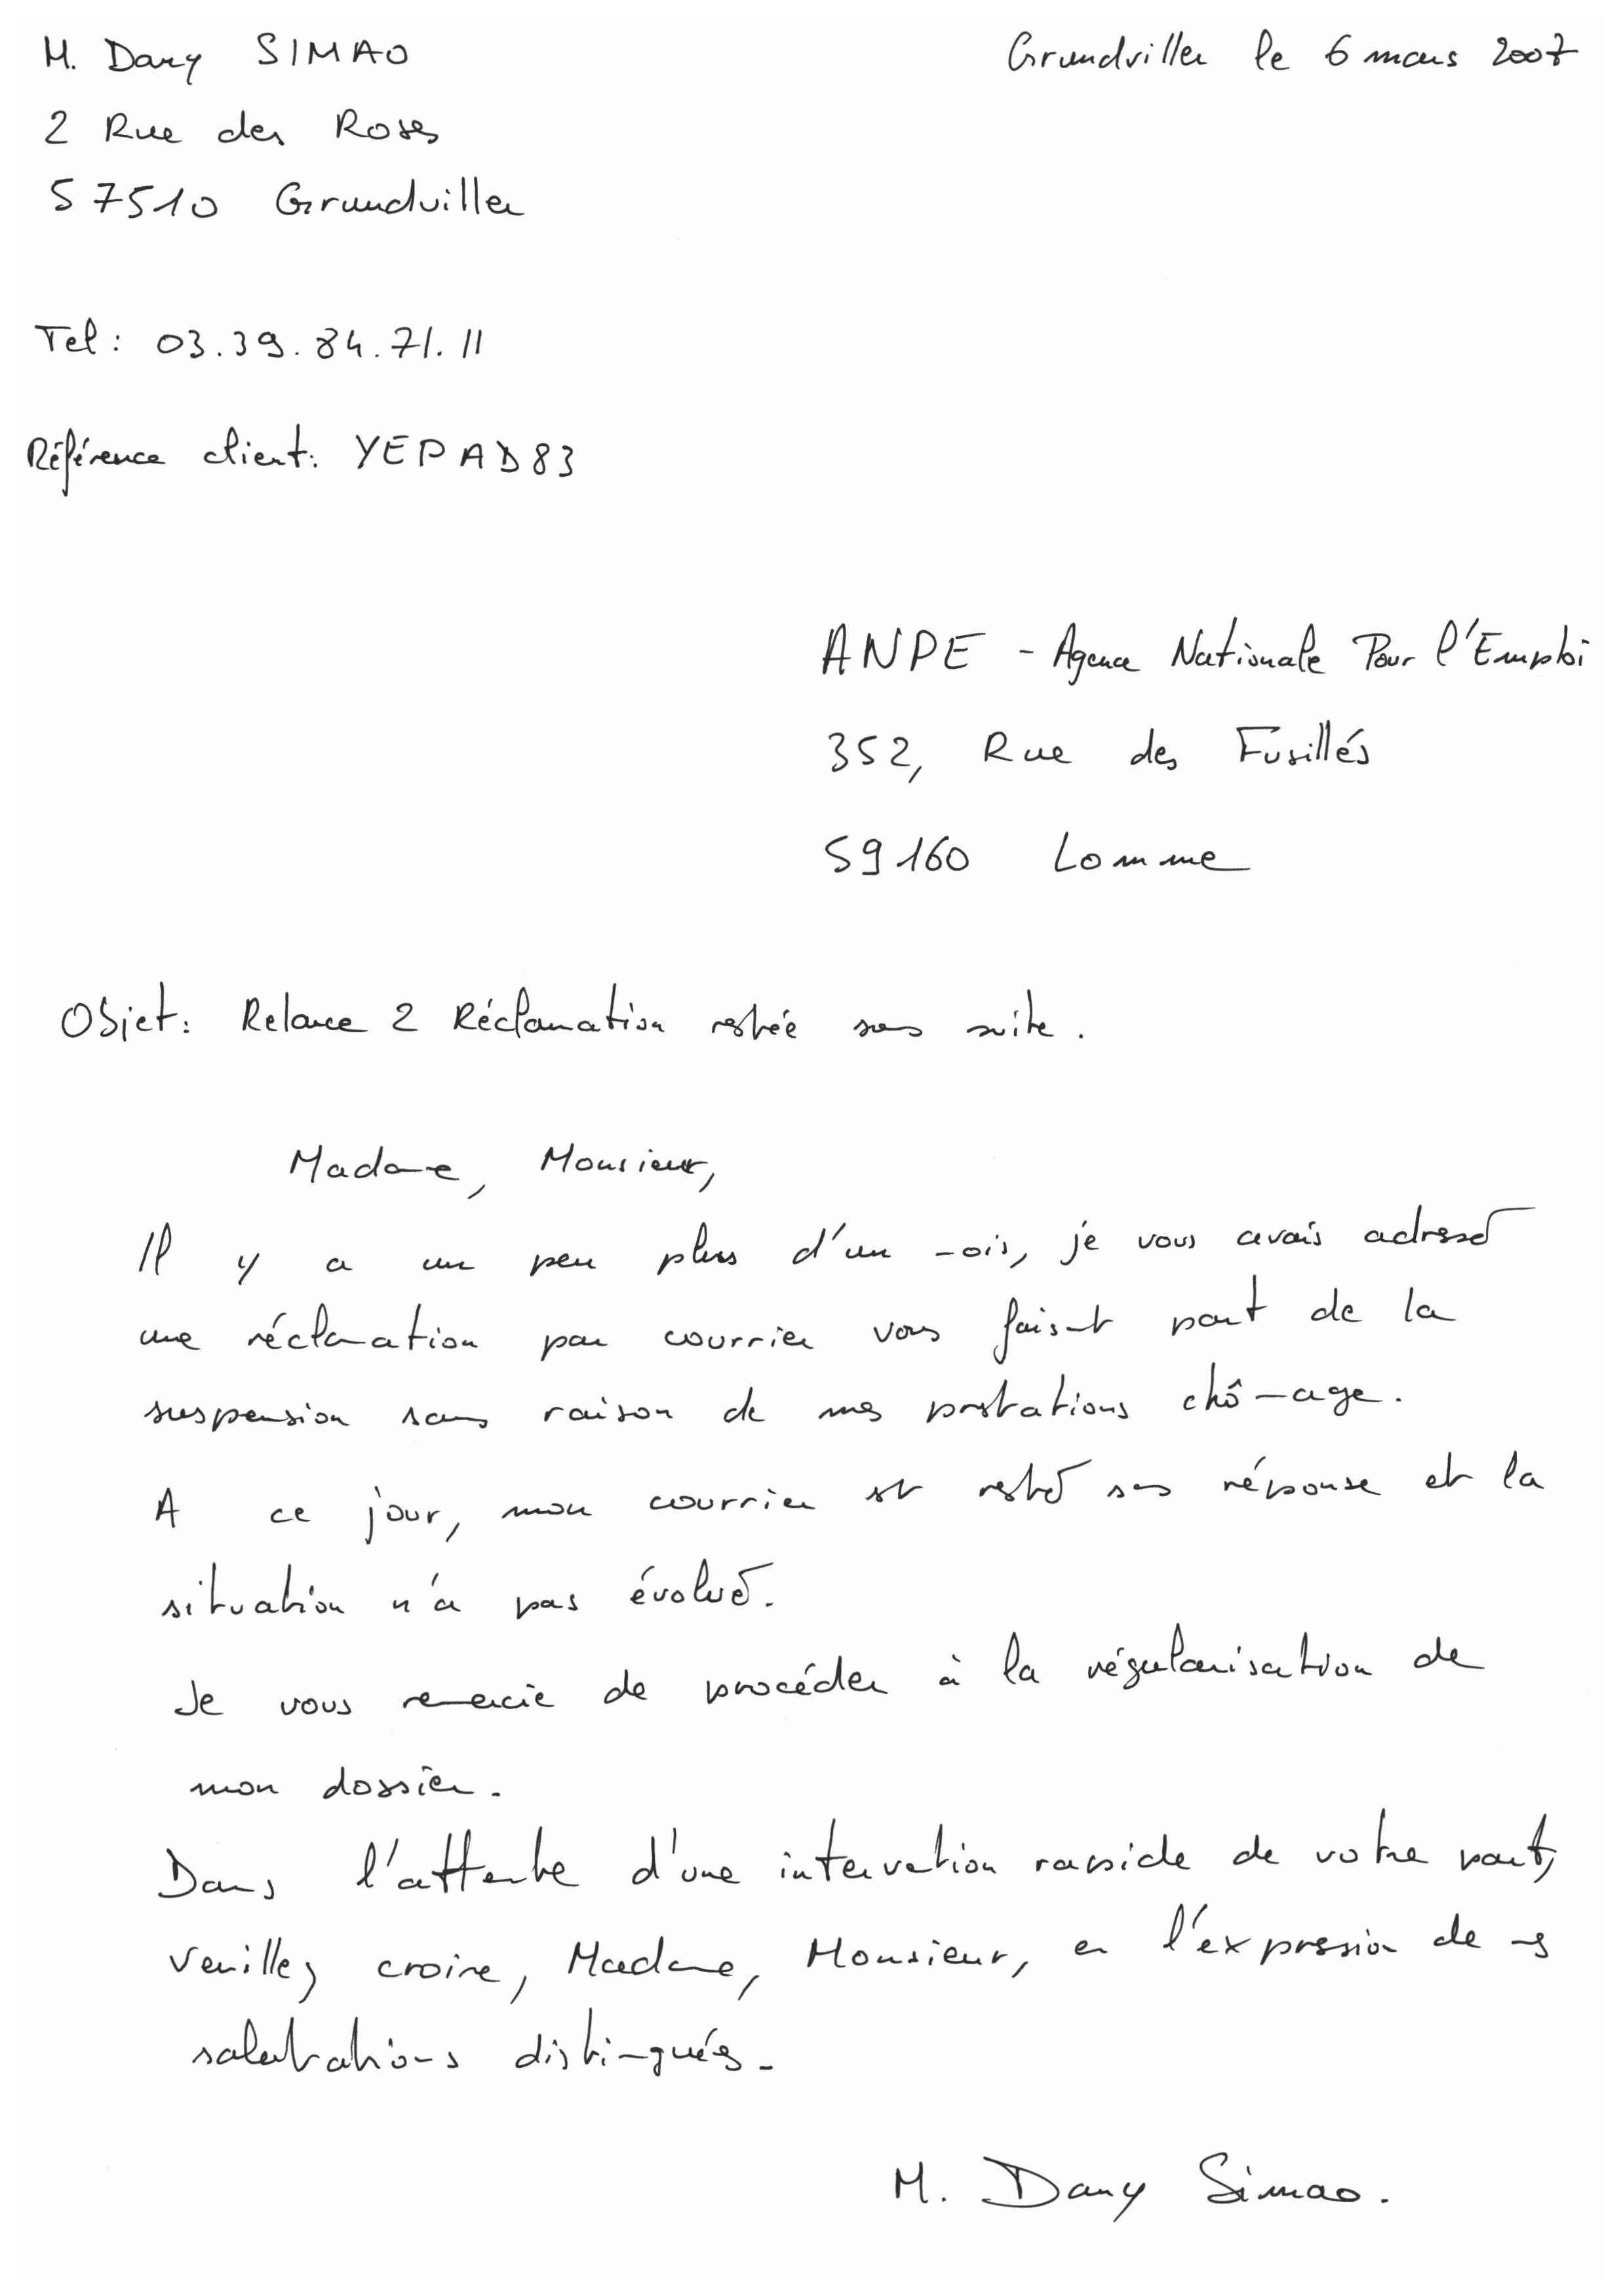 M. Dany SIMAO
Grundviller le 6 mars 2007
2 Rue des Roses
57510 Grundviller
Tel: 03.39.84.71.11
Référence client: YEPAD83
ANPE - Agence Nationale Pour l'Emploi
352, Rue des Fusillés
59160 Lomme
Objet: Relance 2 Réclamation restée sans suite.
Madame, Monsieur,
Il y a un peu plus d'un mois, je vous avais adressé
une réclamation par courrier vous faisant part de la
suspension sans raison de mes prestations chômage.
A ce jour, mon courrier est resté sans réponse et la
situation n'a pas évolué.
Je vous remercie de procéder à la régularisation de
mon dossier.
Dans l'attente d'une intervention rapide de votre part,
veuillez croire, Madame, Monsieur, en l'expression de mes
salutations distinguées.
M. Dany Simao.